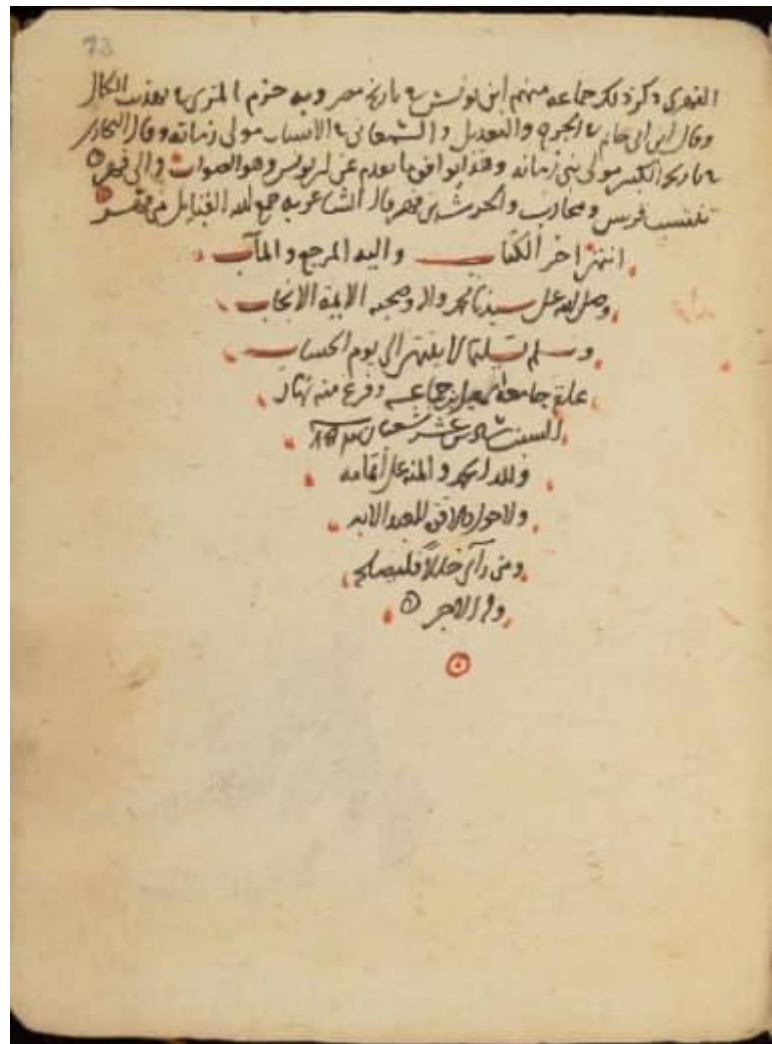 73
الفهري ذكر ذلك جماعه منهم ابن يونس في تاريخ مصر وبه جزم المزي في تهذيب الكمال
وقال ابن ابي حاتم في الجرح والتعديل والسمعاني في الانساب مولى زمانه وقال البخاري
في تاريخه الكبير مولى بني زمانه وهذا يوافق ما تقدم عن ابن يونس وهو الصواب والى فهر
تنتسب قريش ومحارب والحرث بن فهر قال الشاعر به جمع الله القبائل من فهر
انتهى اخر الكتاب واليه المرجع والمآب
وصلى الله على سيدنا محمد واله وصحبه الايمة الانجاب
وسلم تسليما لا ينتهي الى يوم الحساب
علقه جامعه بن جماعه وفرغ منه نهار
السبت سادس عشر شعبان
ولله الحمد والمنه على اتمامه
ولا حول ولا قوه الا به
ومن رأى خللاً فليصلح
وله الاجر